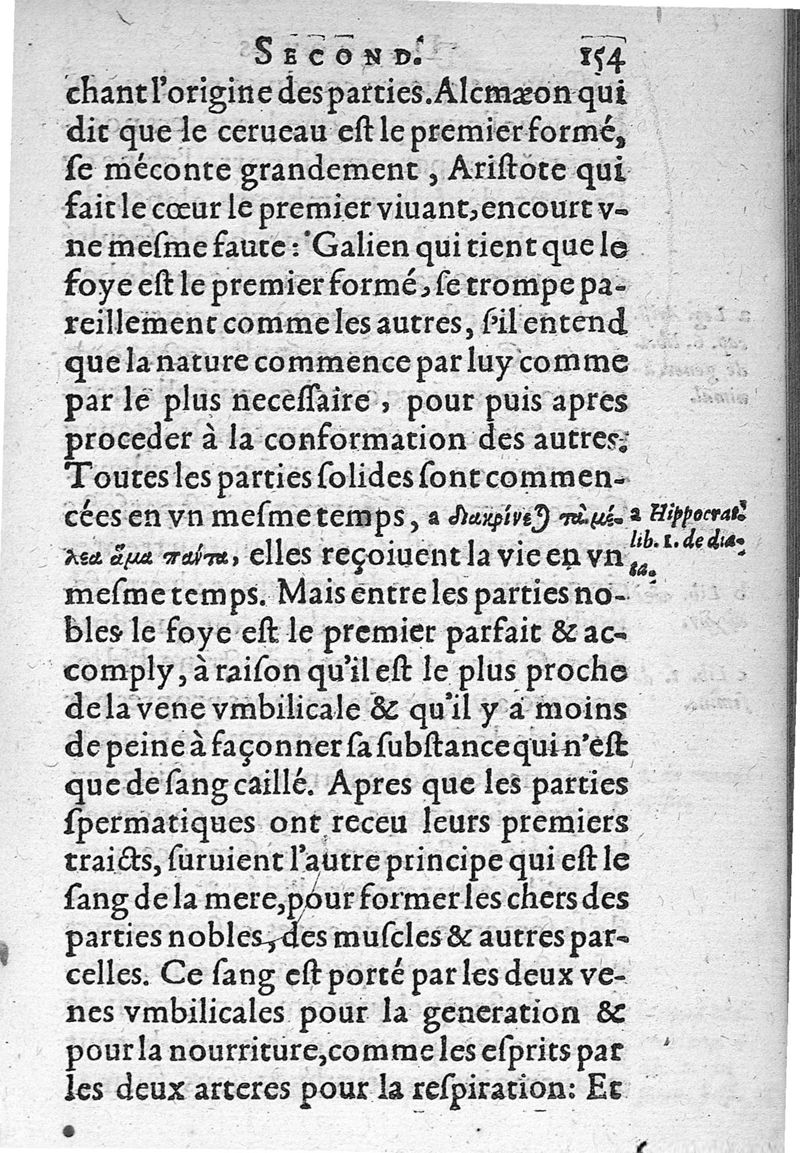 SECOND. 154
chant l'origine des parties. Alcmæon qui
dit que le cerueau eſt le premier formé,
ſe méconte grandement, Ariſtote qui
fait le cœur le premier viuant, encourt v-
ne meſme faute: Galien qui tient que le
foye eſt le premier formé, ſe trompe pa-
reillement comme les autres, ſ'il entend
que la nature commence par luy comme
par le plus neceſſaire, pour puis apres
proceder à la conformation des autres.
Toutes les parties ſolides ſont commen-
cées en vn meſme temps, a διακρίνεϑ τὰ μέ-
λεα ἅμα πάντα, elles reçoiuent la vie en vn
meſme temps. Mais entre les parties no-
bles le foye eſt le premier parfait & ac-
comply, à raiſon qu'il eſt le plus proche
de la vene vmbilicale & qu'il y a moins
de peine à façonner ſa ſubſtance qui n'eſt
que de ſang caillé. Apres que les parties
ſpermatiques ont receu leurs premiers
traicts, ſuruient l'autre principe qui eſt le
ſang de la mere, pour former les chers des
parties nobles, des muſcles & autres par-
celles. Ce ſang eſt porté par les deux ve-
nes vmbilicales pour la generation &
pour la nourriture, comme les eſprits par
les deux arteres pour la reſpiration: Et
a Hippocrat.
lib. 1. de diæ-
ta.